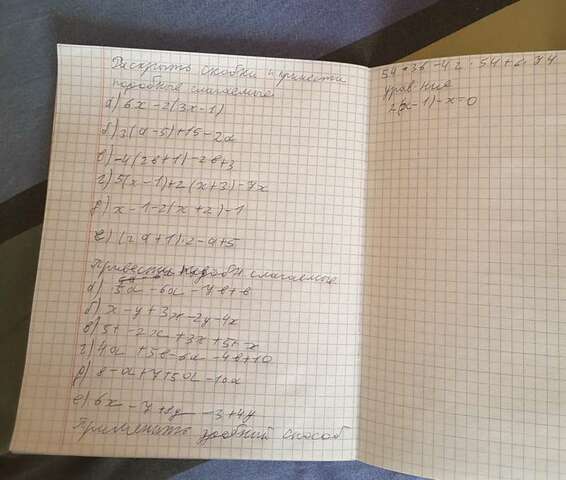 Раскрыть скобки и привести
подобные слагаемые
а) 6x-2(3x-1)
б) 3(a-5)+15-2a
в) -4(2в+1)-2в+3
г) 5(x-1)+2(x+3)-7x
д) x-1-2(x+2)-1
е) (2a+1)·2-a+5
Привести подобн слагаемые
а) 5a-6a-7в+в
б) x-y+3x-2y-4x
в) 5+-2x+3x+5+-x
г) 4a+5в-6a-4в+10
д) 8-a+7+5a-10a
е) 6x-7+8y-3+4y
Применить удобный способ
54·36-42·54+6·74
уравние
2(x-1)-x=0